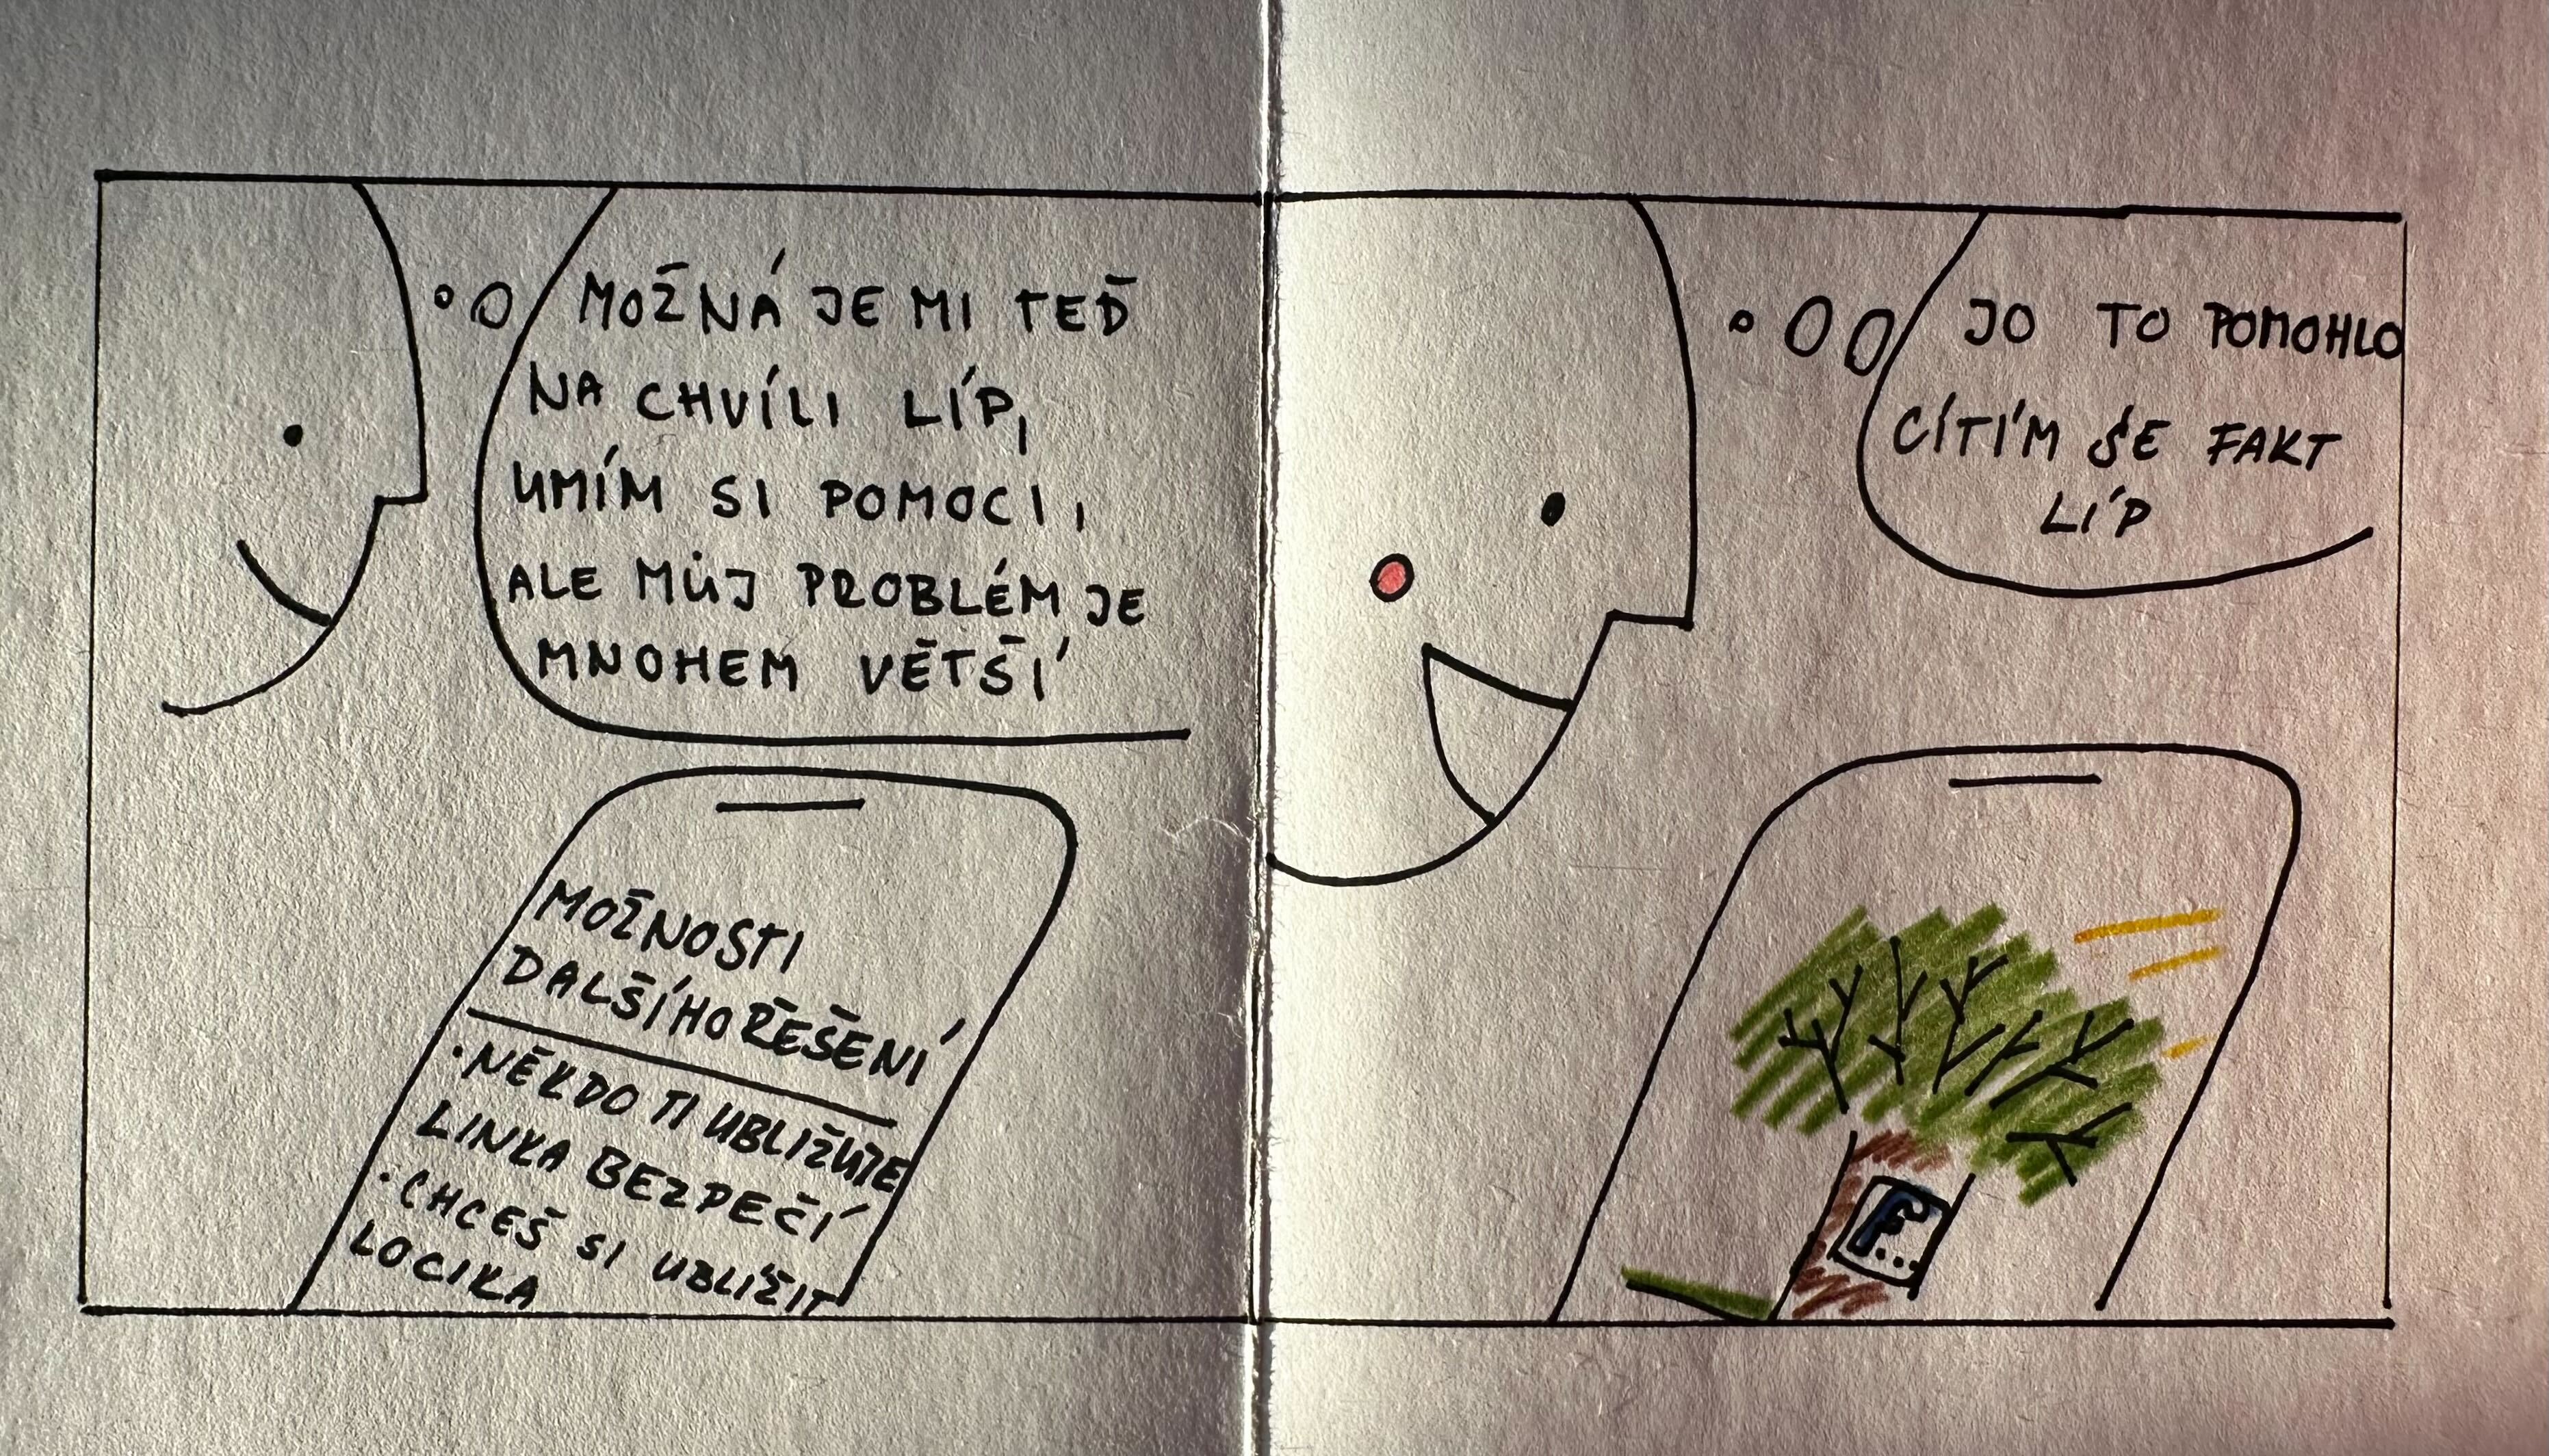 MOŽNÁ JE MI TEĎ
NA CHVÍLI LÍP,
UMÍM SI POMOCI,
ALE MŮJ PROBLÉM JE
MNOHEM VĚTŠÍ
MOŽNOSTI
DALŠÍHO ŘEŠENÍ
·NĚKDO TI UBLIŽUJE
LINKA BEZPEČÍ
·CHCEŠ SI UBLÍŽIT
LOCIKA
JO TO POMOHLO
CÍTÍM SE FAKT
LÍP
F...